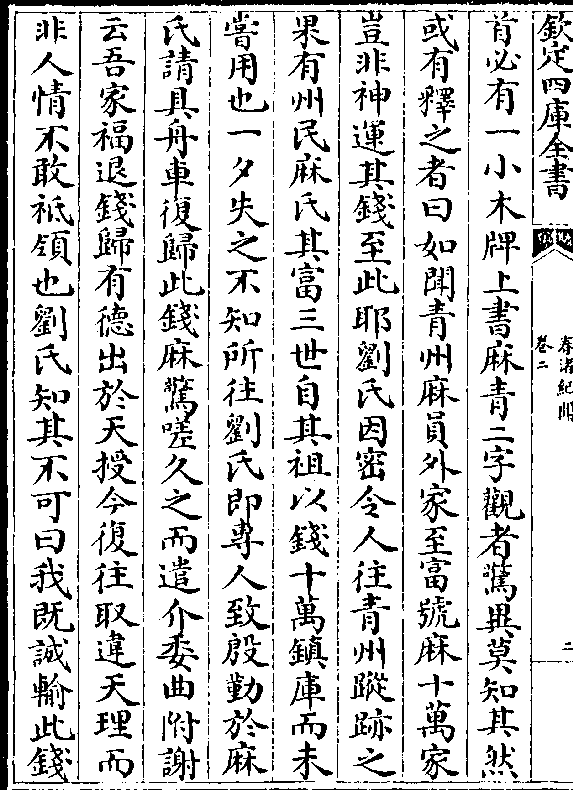 欽定四庫全書
春渚紀聞
卷二
二
首必有一小木牌上書麻青二字觀者驚異莫知其然
或有釋之者曰如聞青州麻員外家至富號麻十萬家
豈非神運其錢至此耶劉氏因密令人往青州蹤跡之
果有州民麻氏其富三世自其祖以錢十萬鎮庫而未
嘗用也一夕失之不知所往劉氏即專人致殷勤於麻
氏請具舟車復歸此錢麻驚嗟久之而遣介委曲附謝
云吾家福退錢歸有德出於天授今復往取違天理而
非人情不敢祗領也劉氏知其不可曰我既誠輸此錢